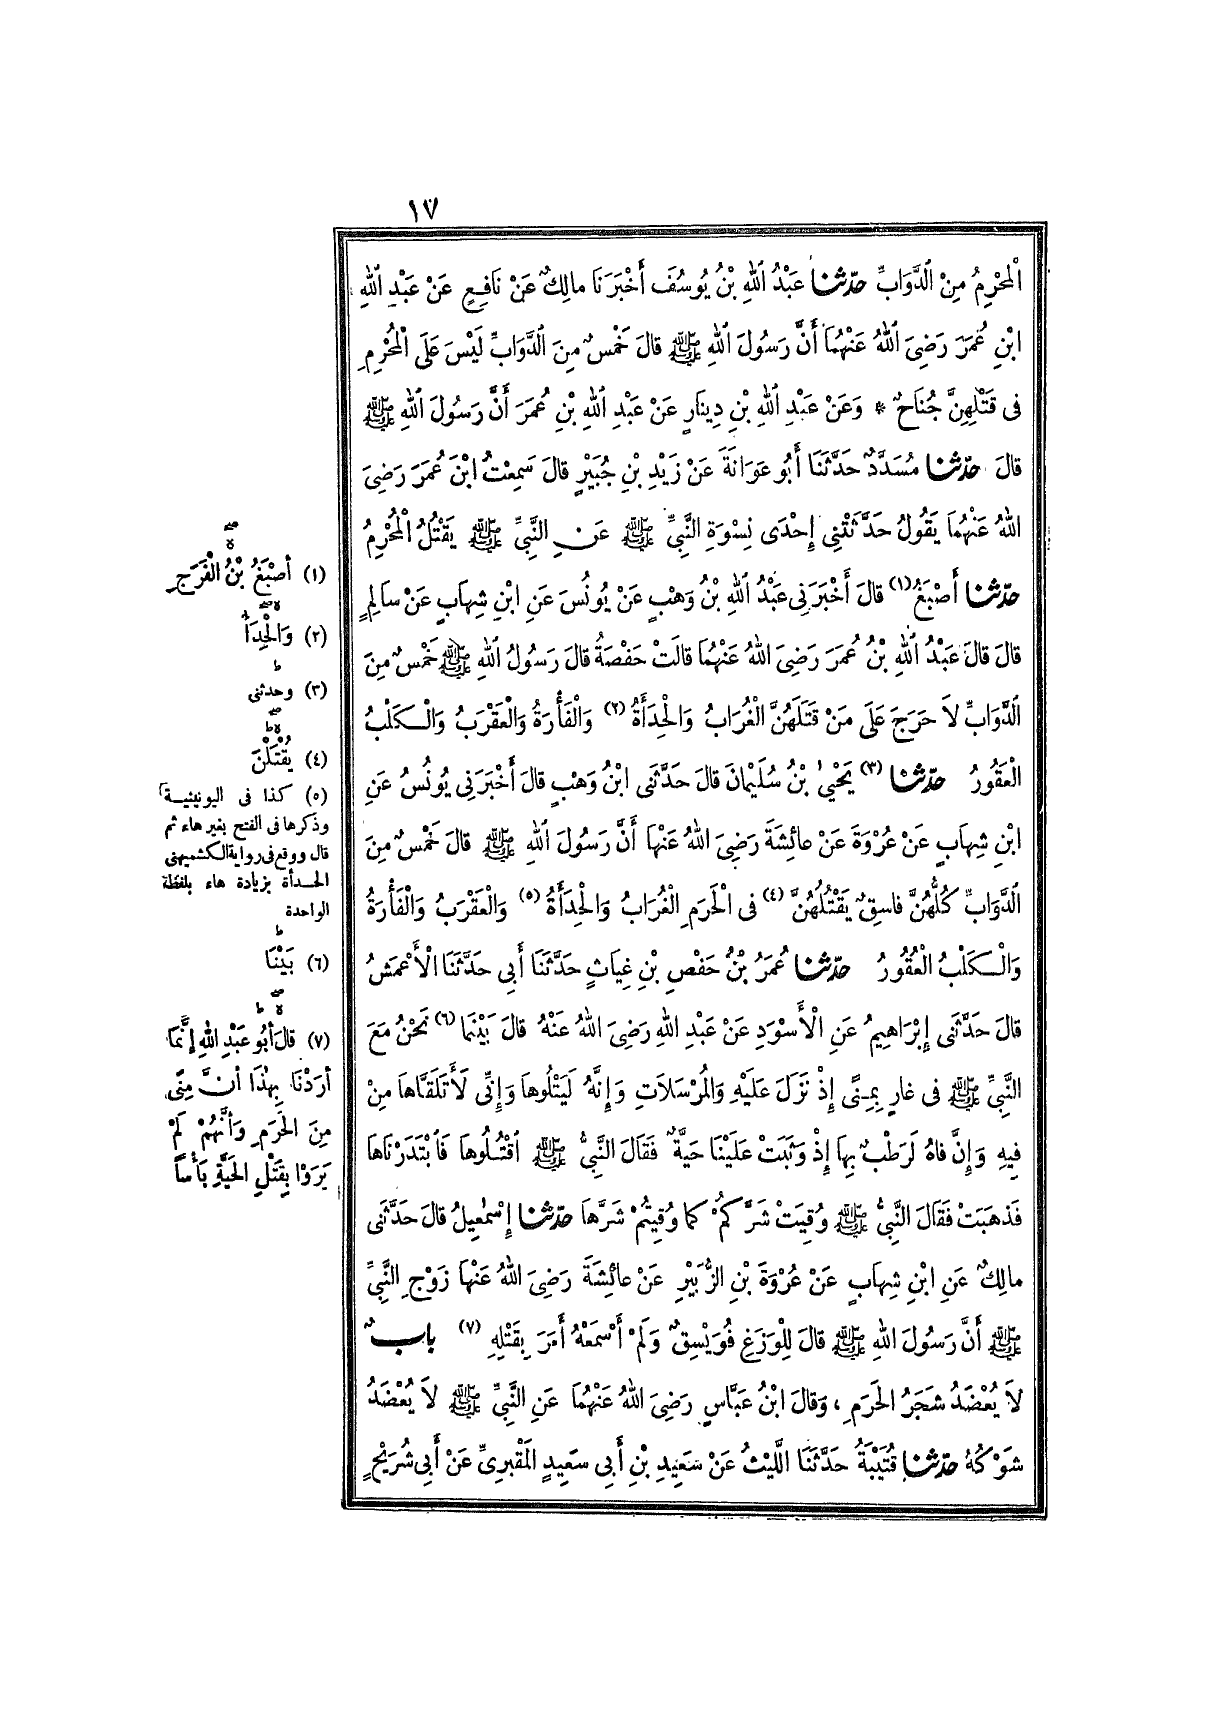 ١٧
الْمُحْرِمُ مِنَ الدَّوَابِّ حَدَّثَنَا عَبْدُ اللهِ بْنُ يُوسُفَ أَخْبَرَنَا مَالِكٌ عَنْ نَافِعٍ عَنْ عَبْدِ اللهِ
ابْنِ عُمَرَ رَضِيَ اللهُ عَنْهُمَا أَنَّ رَسُولَ اللهِ ﷺ قَالَ خَمْسٌ مِنَ الدَّوَابِّ لَيْسَ عَلَى الْمُحْرِمِ
فِى قَتْلِهِنَّ جُنَاحٌ * وَعَنْ عَبْدِ اللهِ بْنِ دِينَارٍ عَنْ عَبْدِ اللهِ بْنِ عُمَرَ أَنَّ رَسُولَ اللهِ ﷺ
قَالَ حَدَّثَنَا مُسَدَّدٌ حَدَّثَنَا أَبُو عَوَانَةَ عَنْ زَيْدِ بْنِ جُبَيْرٍ قَالَ سَمِعْتُ ابْنَ عُمَرَ رَضِيَ
اللهُ عَنْهُمَا يَقُولُ حَدَّثَتْنِى إِحْدَى نِسْوَةِ النَّبِيِّ ﷺ عَنِ النَّبِيِّ ﷺ يَقْتُلُ الْمُحْرِمُ
حَدَّثَنَا أَصْبَغُ (١) قَالَ أَخْبَرَنِى عَبْدُ اللهِ بْنُ وَهْبٍ عَنْ يُونُسَ عَنِ ابْنِ شِهَابٍ عَنْ سَالِمٍ
قَالَ قَالَ عَبْدُ اللهِ بْنُ عُمَرَ رَضِيَ اللهُ عَنْهُمَا قَالَتْ حَفْصَةُ قَالَ رَسُولُ اللهِ ﷺ خَمْسٌ مِنَ
الدَّوَابِّ لَا حَرَجَ عَلَى مَنْ قَتَلَهُنَّ الْغُرَابُ وَالْحِدَأَةُ (٢) وَالْفَأْرَةُ وَالْعَقْرَبُ وَالْكَلْبُ
الْعَقُورُ حَدَّثَنَا (٣) يَحْيَى بْنُ سُلَيْمَانَ قَالَ حَدَّثَنِى ابْنُ وَهْبٍ قَالَ أَخْبَرَنِى يُونُسُ عَنِ
ابْنِ شِهَابٍ عَنْ عُرْوَةَ عَنْ عَائِشَةَ رَضِيَ اللهُ عَنْهَا أَنَّ رَسُولَ اللهِ ﷺ قَالَ خَمْسٌ مِنَ
الدَّوَابِّ كُلُّهُنَّ فَاسِقٌ يَقْتُلُهُنَّ (٤) فِى الْحَرَمِ الْغُرَابُ وَالْحِدَأَةُ (٥) وَالْعَقْرَبُ وَالْفَأْرَةُ
وَالْكَلْبُ الْعَقُورُ حَدَّثَنَا عُمَرُ بْنُ حَفْصِ بْنِ غِيَاثٍ حَدَّثَنَا أَبِى حَدَّثَنَا الْأَعْمَشُ
قَالَ حَدَّثَنِى إِبْرَاهِيمُ عَنِ الْأَسْوَدِ عَنْ عَبْدِ اللهِ رَضِيَ اللهُ عَنْهُ قَالَ بَيْنَمَا (٦) نَحْنُ مَعَ
النَّبِيِّ ﷺ فِى غَارٍ بِمِنًى إِذْ نَزَلَ عَلَيْهِ وَالْمُرْسَلَاتِ وَإِنَّهُ لَيَتْلُوهَا وَإِنِّى لَأَتَلَقَّاهَا مِنْ
فِيهِ وَإِنَّ فَاهُ لَرَطْبٌ بِهَا إِذْ وَثَبَتْ عَلَيْنَا حَيَّةٌ فَقَالَ النَّبِيُّ ﷺ اقْتُلُوهَا فَابْتَدَرْنَاهَا
فَذَهَبَتْ فَقَالَ النَّبِيُّ ﷺ وُقِيَتْ شَرَّكُمْ كَمَا وُقِيتُمْ شَرَّهَا حَدَّثَنَا إِسْمَعِيلُ قَالَ حَدَّثَنِى
مَالِكٌ عَنِ ابْنِ شِهَابٍ عَنْ عُرْوَةَ بْنِ الزُّبَيْرِ عَنْ عَائِشَةَ رَضِيَ اللهُ عَنْهَا زَوْجِ النَّبِيِّ
ﷺ أَنَّ رَسُولَ اللهِ ﷺ قَالَ لِلْوَزَغِ فُوَيْسِقٌ وَلَمْ أَسْمَعْهُ أَمَرَ بِقَتْلِهِ (٧) بَابٌ
لَا يُعْضَدُ شَجَرُ الْحَرَمِ ، وَقَالَ ابْنُ عَبَّاسٍ رَضِيَ اللهُ عَنْهُمَا عَنِ النَّبِيِّ ﷺ لَا يُعْضَدُ
شَوْكُهُ حَدَّثَنَا قُتَيْبَةُ حَدَّثَنَا اللَّيْثُ عَنْ سَعِيدِ بْنِ أَبِى سَعِيدٍ الْمَقْبُرِيِّ عَنْ أَبِى شُرَيْحٍ
صـ
ه
(١) أَصْبَغُ بْنُ الْفَرَجِ
ه صـ
(٢) وَالْحِدَأُ
ط
(٣) وحدثنى
صـ
ه ط
(٤) يُقْتَلْنَ
(٥) كذا فى اليونينية
وذكرها فى الفتح بغير هاء ثم
قال ووقع فى رواية الكشميهنى
الحدأة بزيادة هاء بلفظة
الواحدة
ط
(٦) بَيْنَا
صـ
ه ط
(٧) قَالَ أَبُو عَبْدِ اللهِ إِنَّمَا
أَرَدْنَا بِهَذَا أَنَّ مِنًى
مِنَ الْحَرَمِ وَأَنَّهُمْ لَمْ
يَرَوْا بِقَتْلِ الْحَيَّةِ بَأْسًا